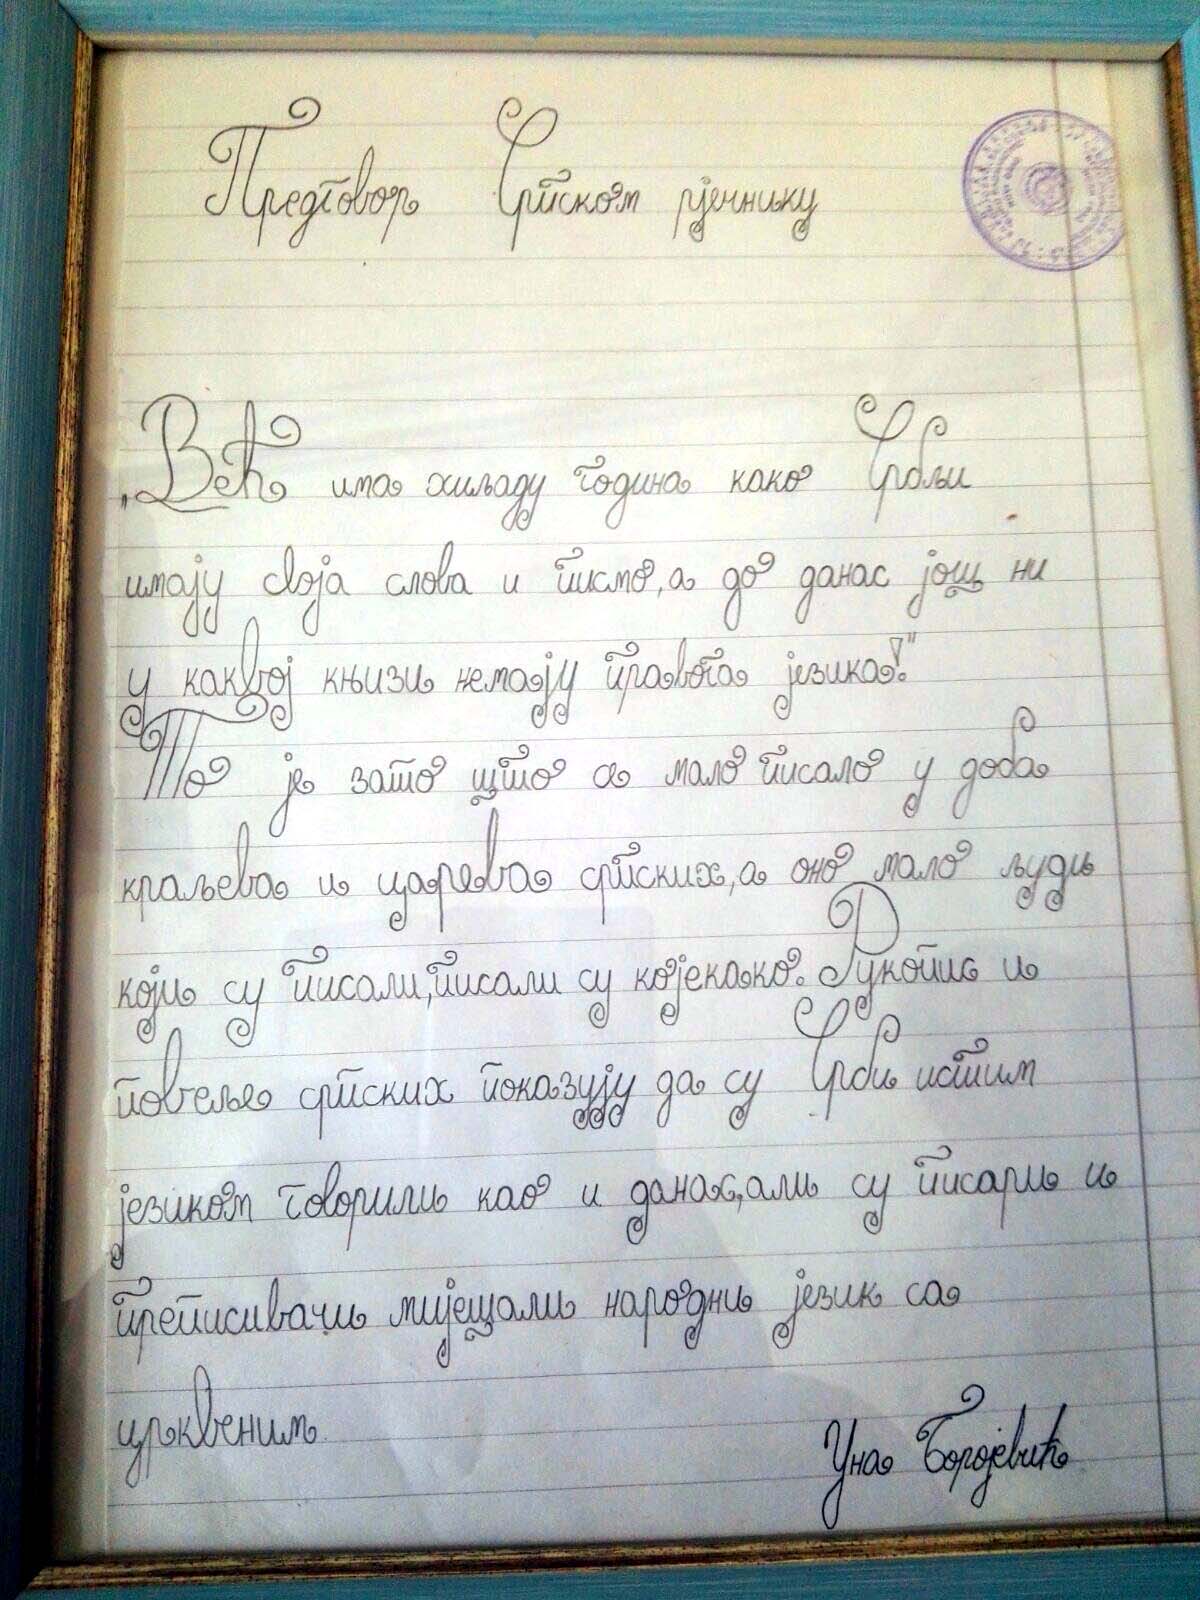 Предговор Српском рјечнику
„Већ има хиљаду година како Србљи
имају своја слова и писмо, а до данас још ни
у каквој књизи немају правога језика!"
То је зато што се мало писало у доба
краљева и царева српских, а оно мало људи
који су писали, писали су којекако. Рукопис и
повеље српских показују да су Срби истим
језиком говорили као и данас, али су писари и
преписивачи мијешали народни језик са
црквеним
Уна Боројевић